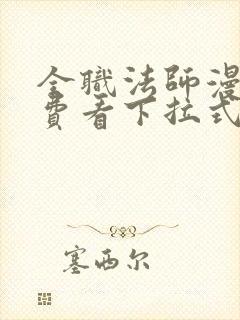 全職法師漫
費看下拉式
塞西尔